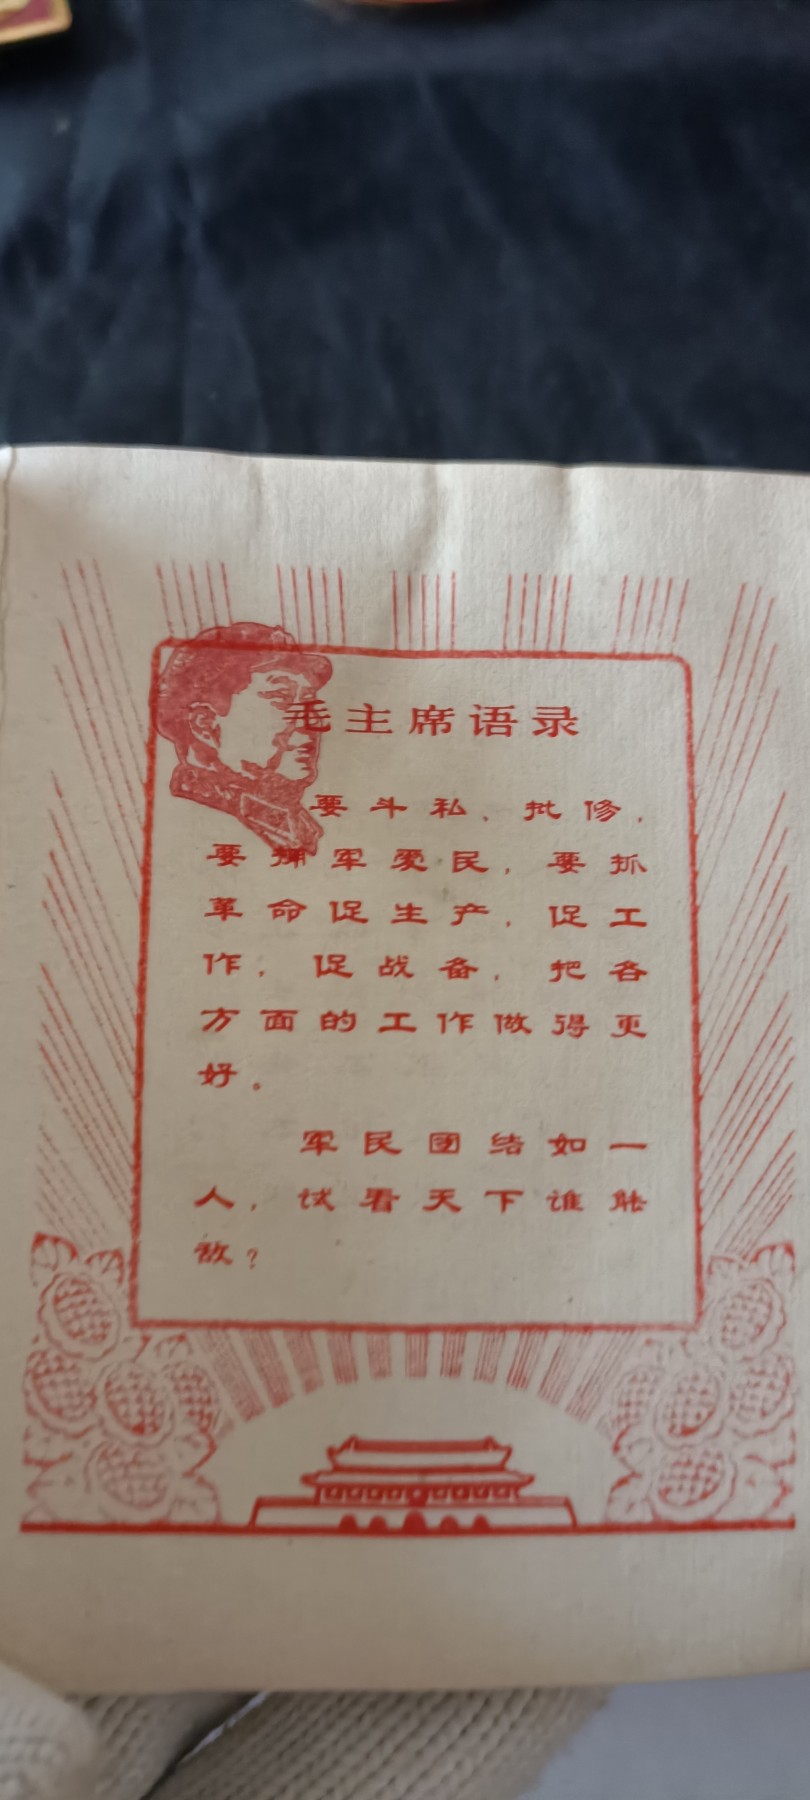 毛主席语录
要斗私、批修，
要拥军爱民，要抓
革命促生产，促工
作，促战备，把各
方面的工作做得更
好。
军民团结如一
人，试看天下谁能
敌？